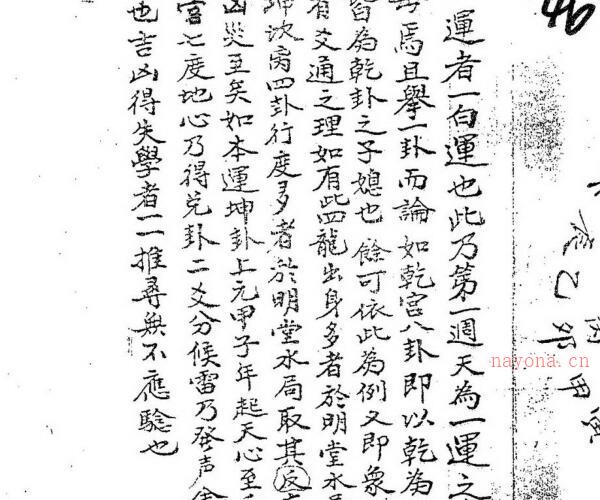 46
運者一白運也此乃第一週天為一運之
焉且舉一卦而論如乾宮八卦即以乾為
皆為乾卦之子媳也餘可依此為例又即象
有爻通之理如有此四龍出身多者於明堂水
坤坎离四卦行度多者於明堂水局取其反
凶災至矣如本運坤卦上元甲子年起天心至
宮七度地心乃得兑卦二爻分候雷乃發声
也吉凶得失學者一一推尋無不應騐也
乙卯
甲寅
nayona.cn